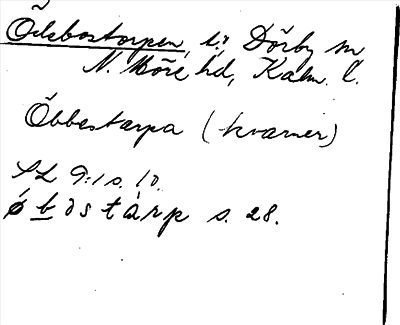 Ödsbostorpen, i: Dörby sn
N. Möre hd, Kalm. l.
Öbbestarpa (kramer)
SL 9:1 s. 10.
ø b ə s t à r p s. 28.